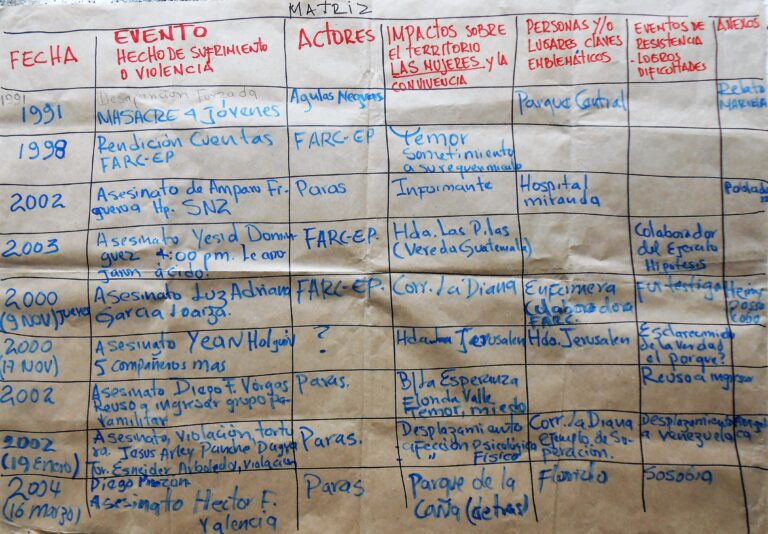 MATRIZ
FECHA
EVENTO
HECHO DE SUFRIMIENTO
O VIOLENCIA
ACTORES
IMPACTOS SOBRE
El TERRITORIO
LAS MUJERES y la
CONVIVENCIA
PERSONAS Y/O
LUGARES CLAVES
EMBLEMÁTICOS
EVENTOS DE
RESISTENCIA
- LOGROS
DIFICULTADES
ANEXOS
1991
1991
Desaparición Forzada
MASACRE 4 Jóvenes
Aguilas Negras
Parque Central
Relato
1998
Rendición Cuentas
FARC-EP
FARC-EP
Temor
Sometimiento
a su
2002
Asesinato de Amparo Fi-
gueroa Hp. SNZ
Paras
Informante
Hospital
miranda
2003
Asesinato Yesid Domin
guez 4:00 pm. Le arro
jaron ácido!
FARC-EP.
Hda. Las Pilas
(Vereda Guatemala)
Colaborador
del Ejercito
Hipotesis
2000
(9 NOV) Jueves
Asesinato Luz Adriana
Garcia Loaiza.
FARC-EP.
Corr. la Diana
Enfermera
Colaboradora
FARC.
Fue testigo
2000
(17 NOV)
Asesinato Yean Holguin
5 Compañeros mas
?
Hda. la Jerusalen
Hda. Jerusalen
de la verdad
el porque?
2002
Asesinato Diego F. Vargas
Reuso a ingresar grupo pa-
ramilitar
Paras.
B/da Esperanza
Florida Valle
Temor, miedo
Reuso a ingresar
2002
(19 Enero)
Asesinato, Violación, tortu
ra. Jesus Arley Pancho Dagua
Tor. Esneider Arboleda, Violacion
Paras.
Desplazamiento
afección Psicológico
" Físico
Corr. la Diana
ejemplo de Su-
peración.
Desplazamiento
a Venezuela
2004
(16 Marzo)
Diego
Asesinato Hector F.
Valencia
Paras
Parque de la
Caña (detras)